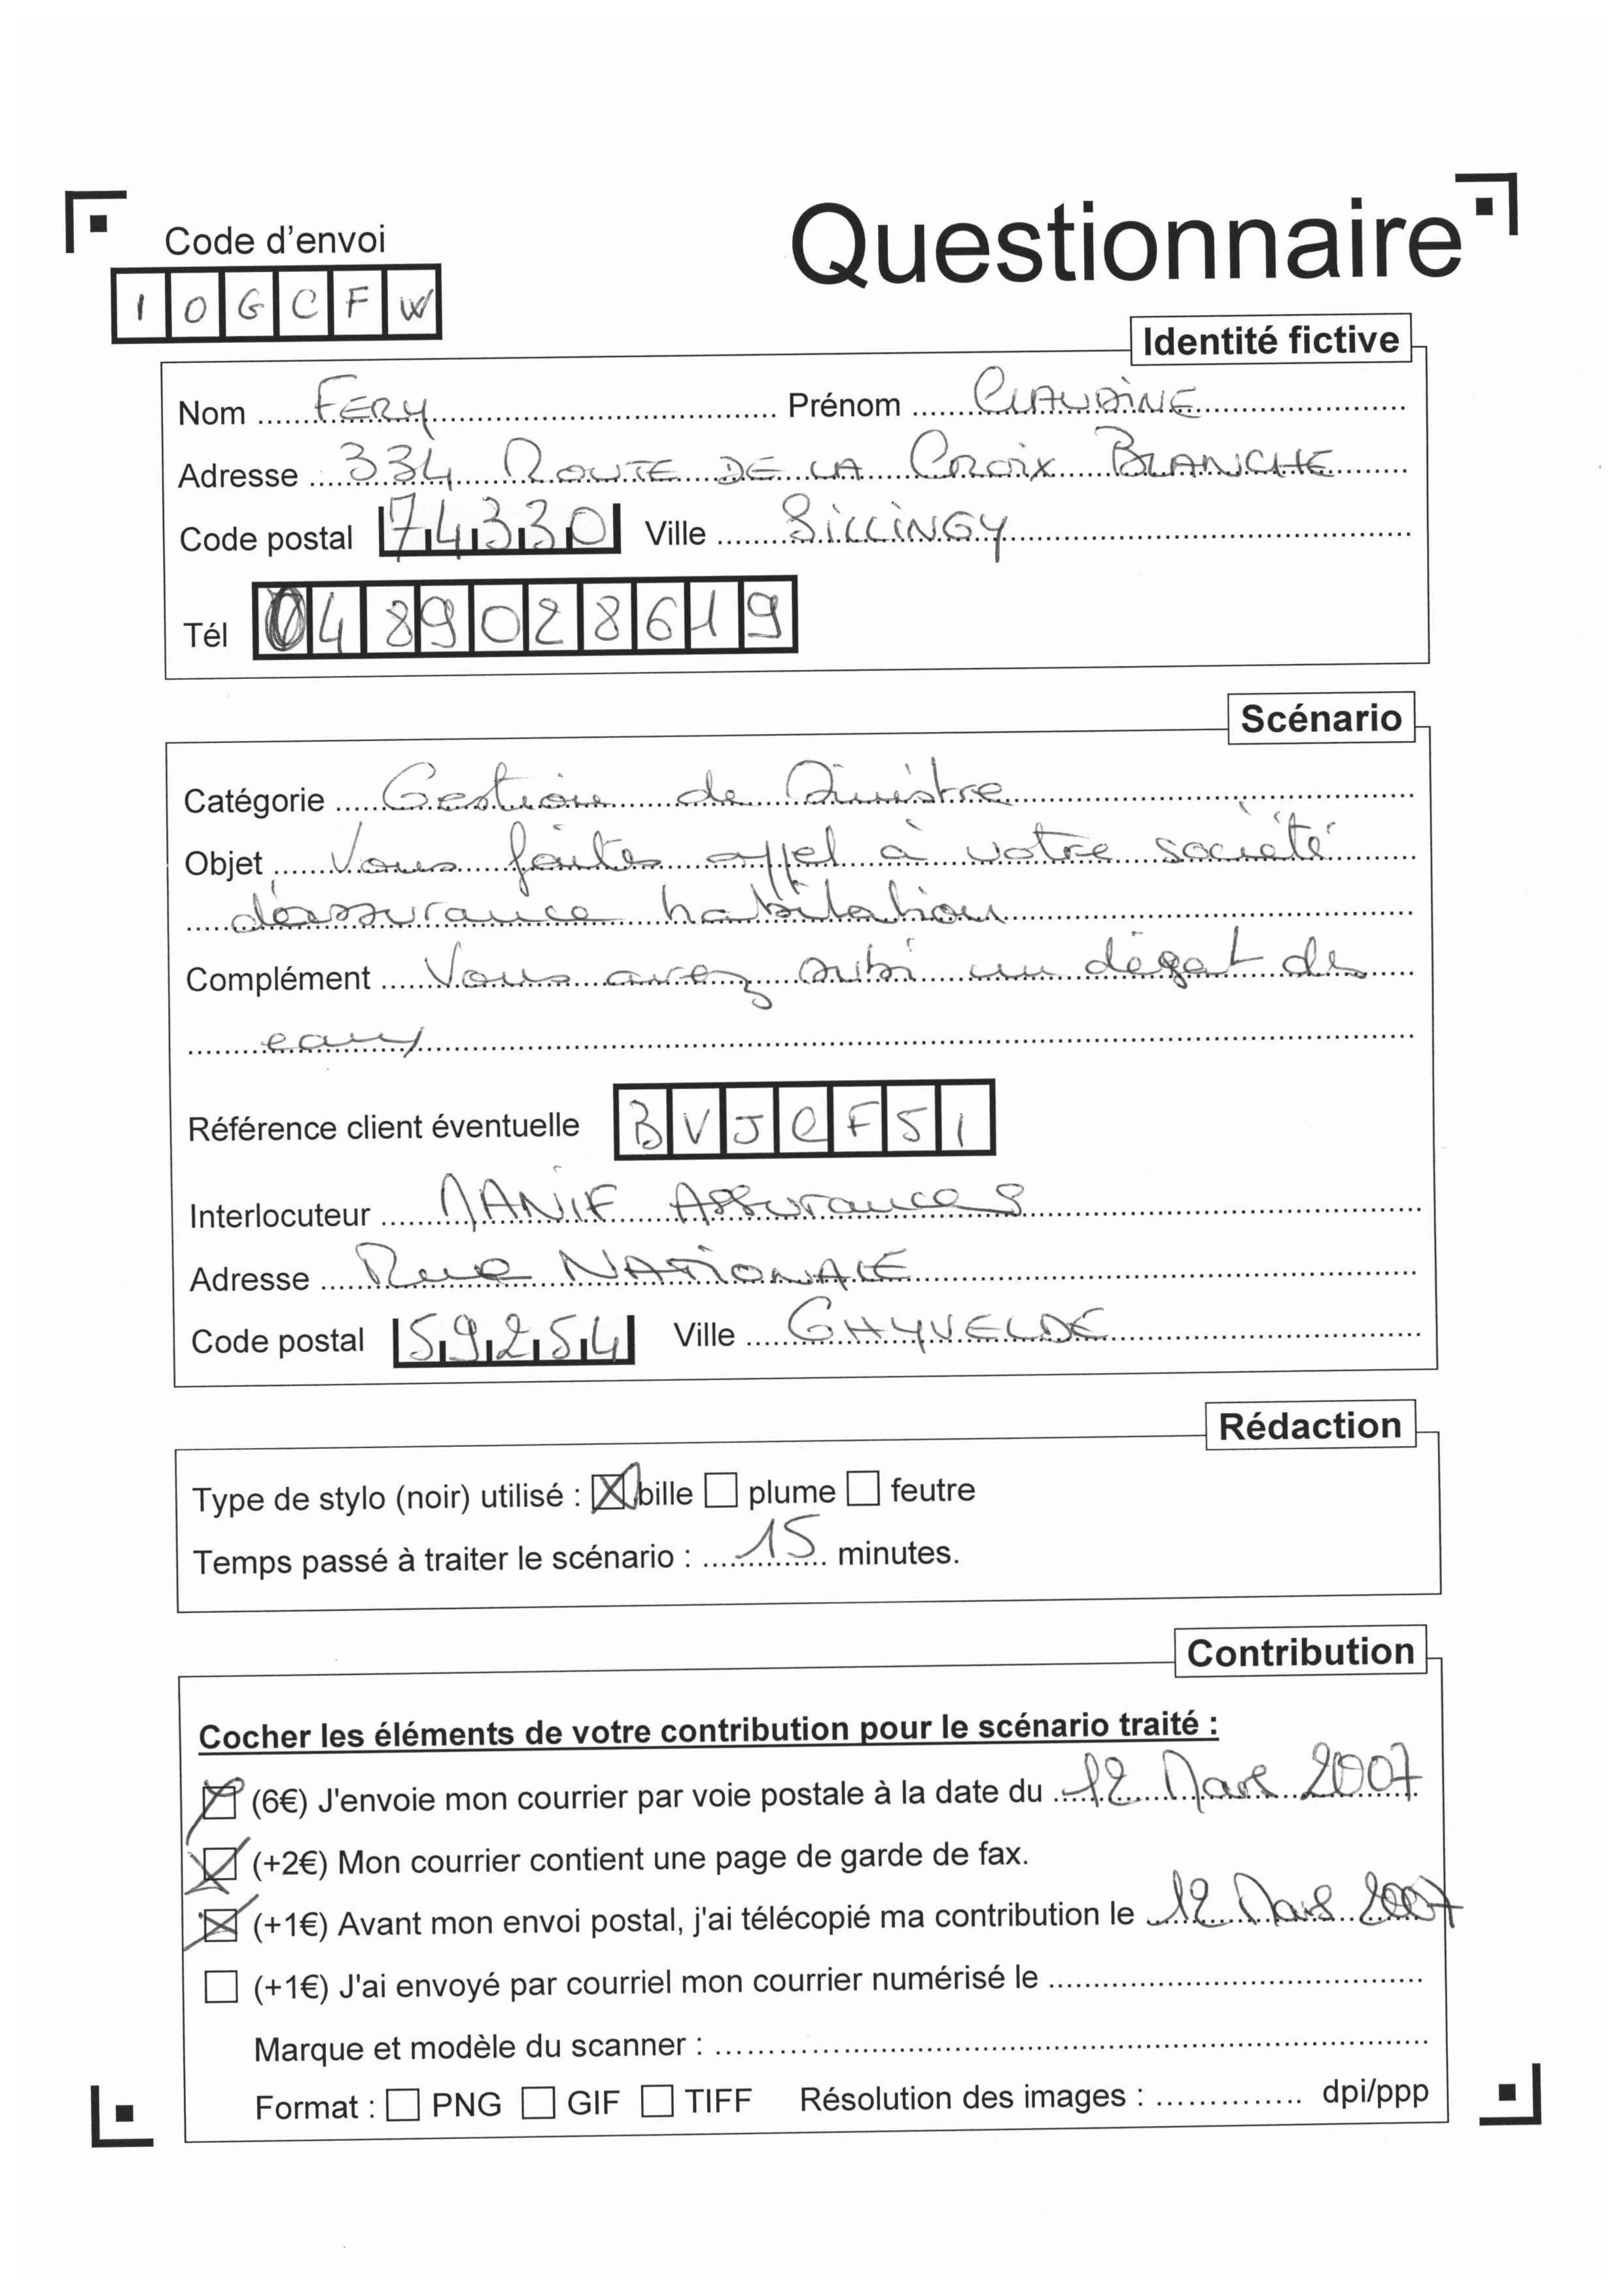 Questionnaire
Code d'envoi
1 0 G C F W
Identité fictive
Nom ..... FERY ..... Prénom ..... CLAUDINE
Adresse ..... 334 ROUTE DE LA CROIX BLANCHE
Code postal 74330 Ville ..... SILLINGY
Tél 0489028619
Scénario
Catégorie ..... Gestion de Sinistre
Objet ..... Vous faites appel à votre société
d'assurance habitation
Complément ..... Vous avez subi un dégat des
eaux
Référence client éventuelle B V J C F 5 1
Interlocuteur ..... MANIF Assurances
Adresse ..... Rue NATIONALE
Code postal 59254 Ville ..... GHYVELDE
Rédaction
Type de stylo (noir) utilisé : ☒ bille ☐ plume ☐ feutre
Temps passé à traiter le scénario : ..... 15 ..... minutes.
Contribution
Cocher les éléments de votre contribution pour le scénario traité :
☒ (6€) J'envoie mon courrier par voie postale à la date du ..... 12 Mars 2007
☒ (+2€) Mon courrier contient une page de garde de fax.
☒ (+1€) Avant mon envoi postal, j'ai télécopié ma contribution le ..... 12 Mars 2007
☐ (+1€) J'ai envoyé par courriel mon courrier numérisé le .....
Marque et modèle du scanner : .....
Format : ☐ PNG ☐ GIF ☐ TIFF Résolution des images : ..... dpi/ppp